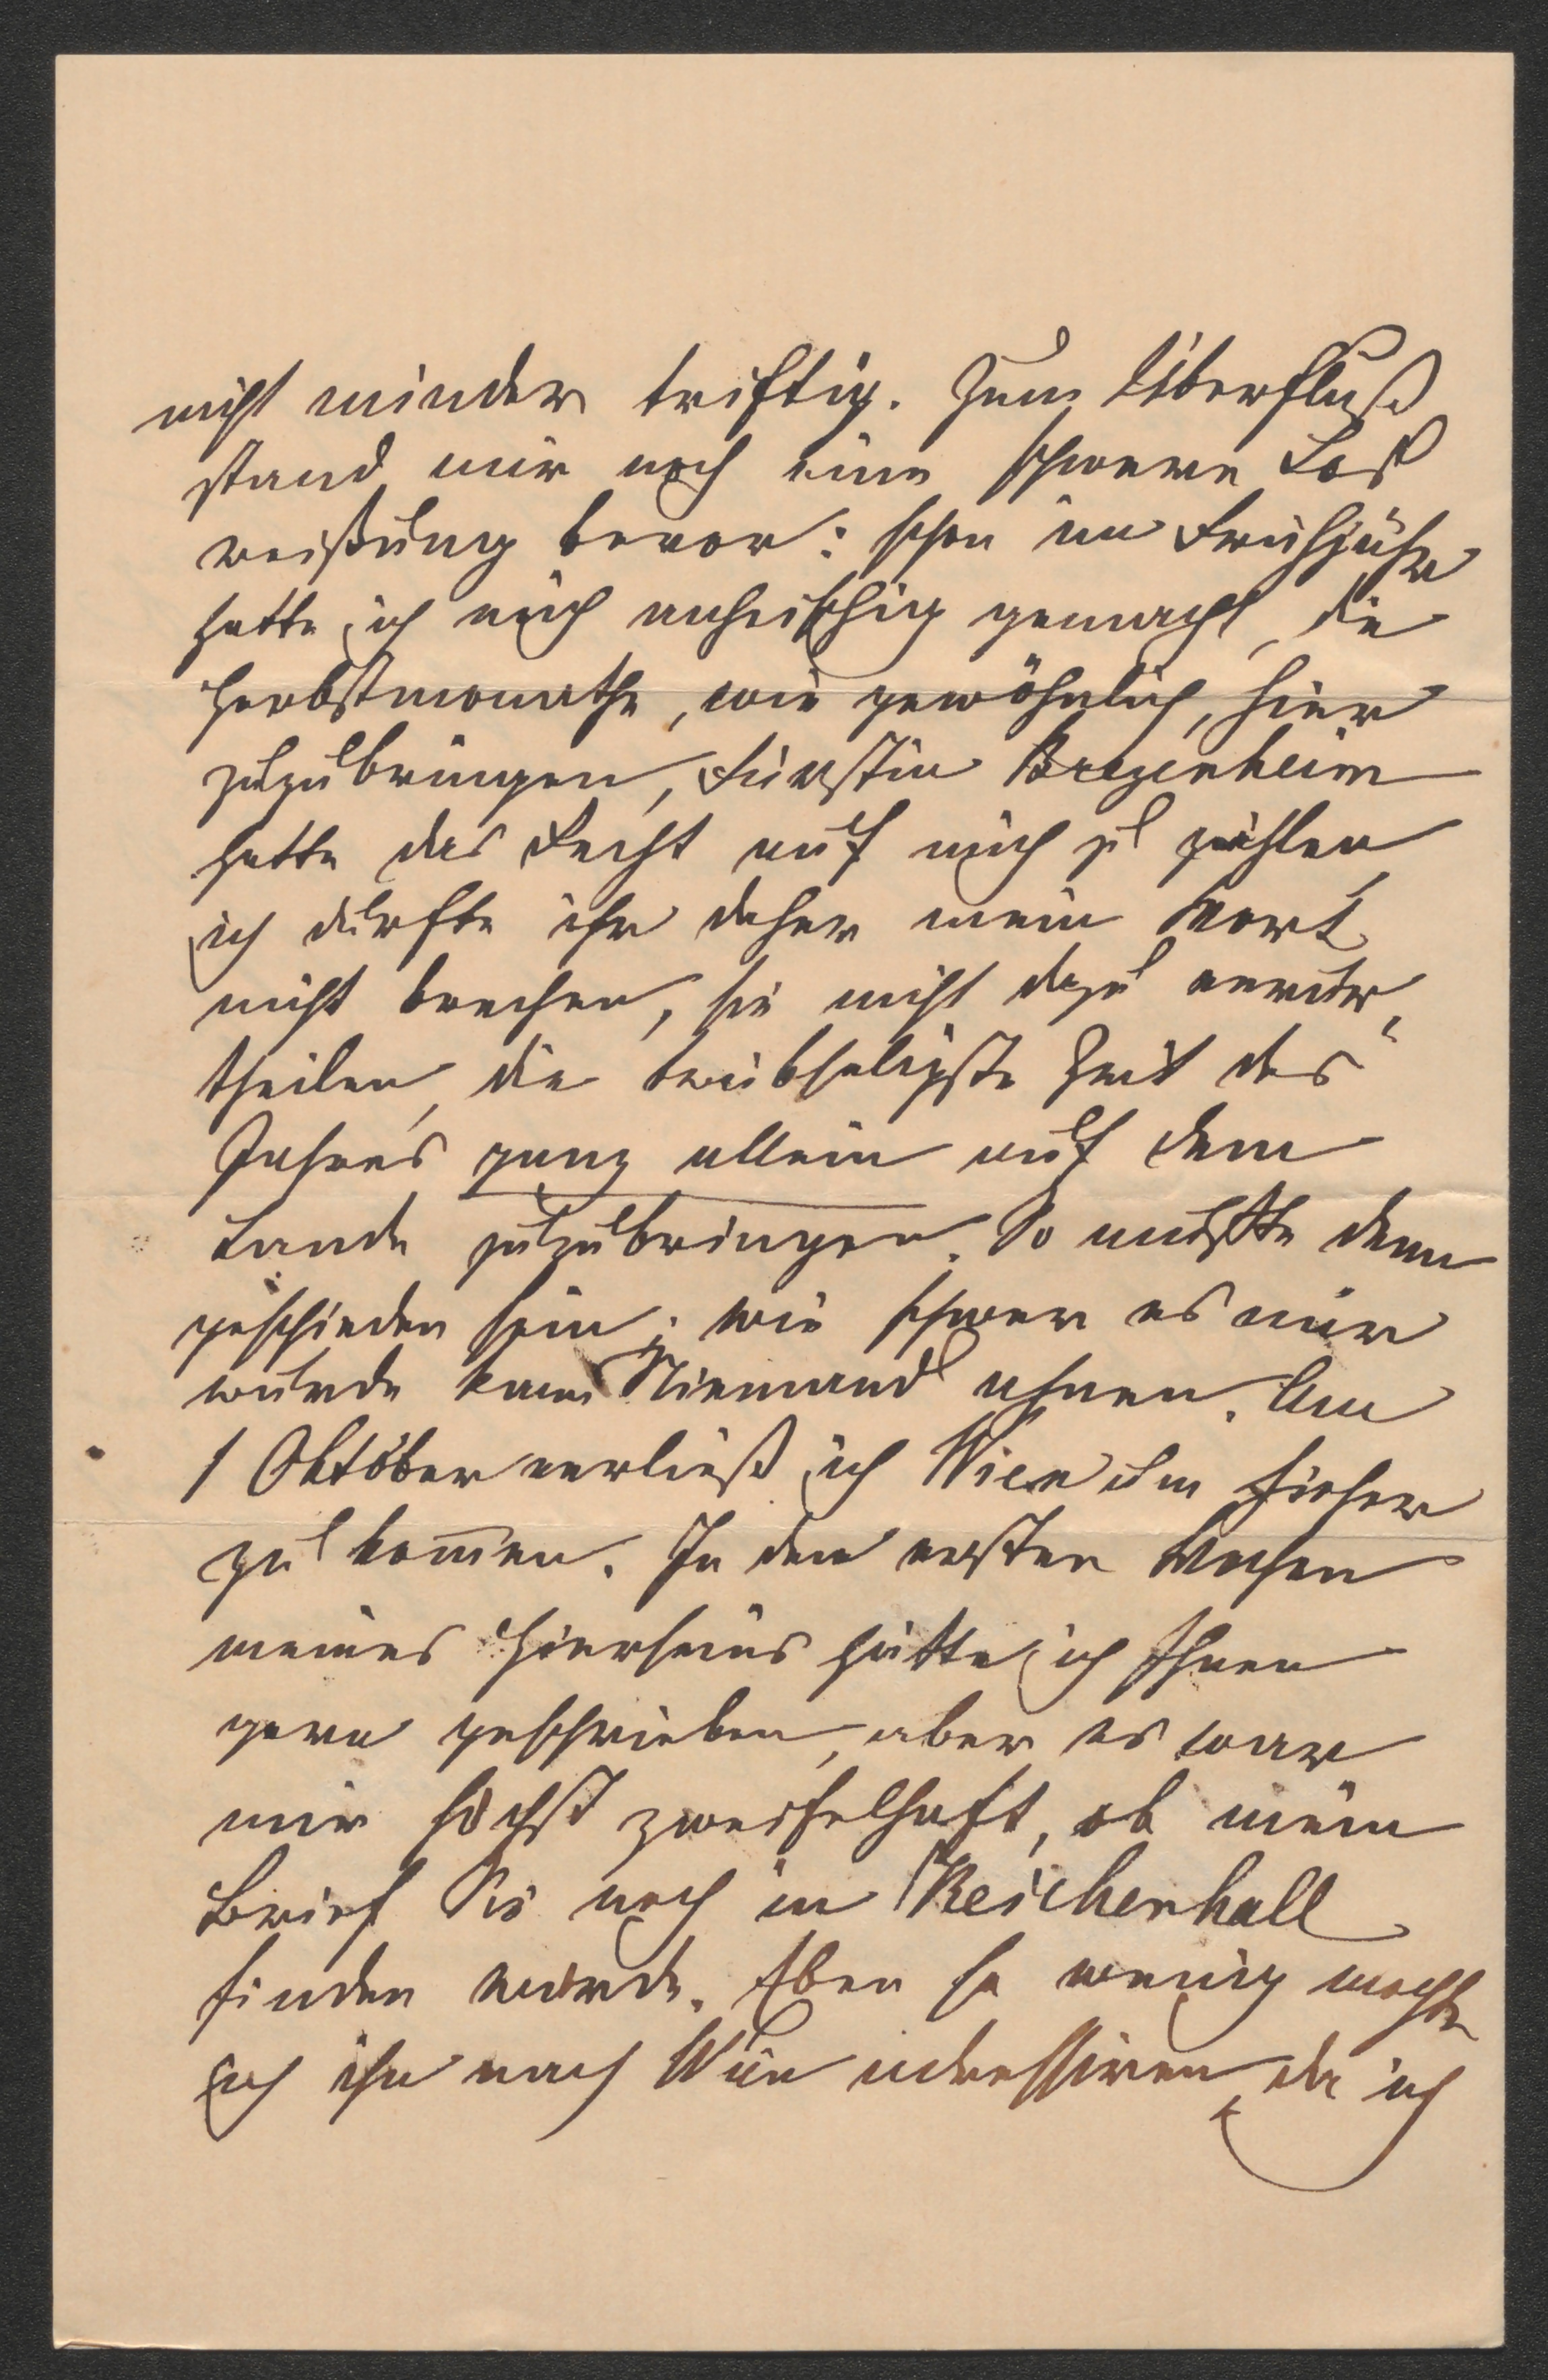 nicht minder triftig. Zum Überfluß
stand mir noch eine schwere Los¬
reißung bevor: schon im Frühjahr
hatte ich mich anheischig gemacht, die
Herbstmonathe, wie gewöhnlich, hier
zuzubringen, Fürstin Brezenheim
hatte das Recht auf mich zu zählen,
ich durfte ihr daher mein Wort
nicht brechen, sie nicht dazu verur„
theilen, die trübseligste Zeit des
Jahres ganz allein auf dem
Lande zuzubringen. So mußte denn
geschieden sein; wie schwer es mir
wurde kann Niemand ahnen. Am
1 Oktober verließ ich Wien um hieher
zu kom̄en. In den ersten Wochen
meines Hierseins hätte ich Ihnen
gern geschrieben, aber es war
mir höchst zweifelhaft, ob mein
Brief Sie noch in Reichenhall
finden würde. Eben so wenig mochte
ich ihn nach Wien adressiren, da ich